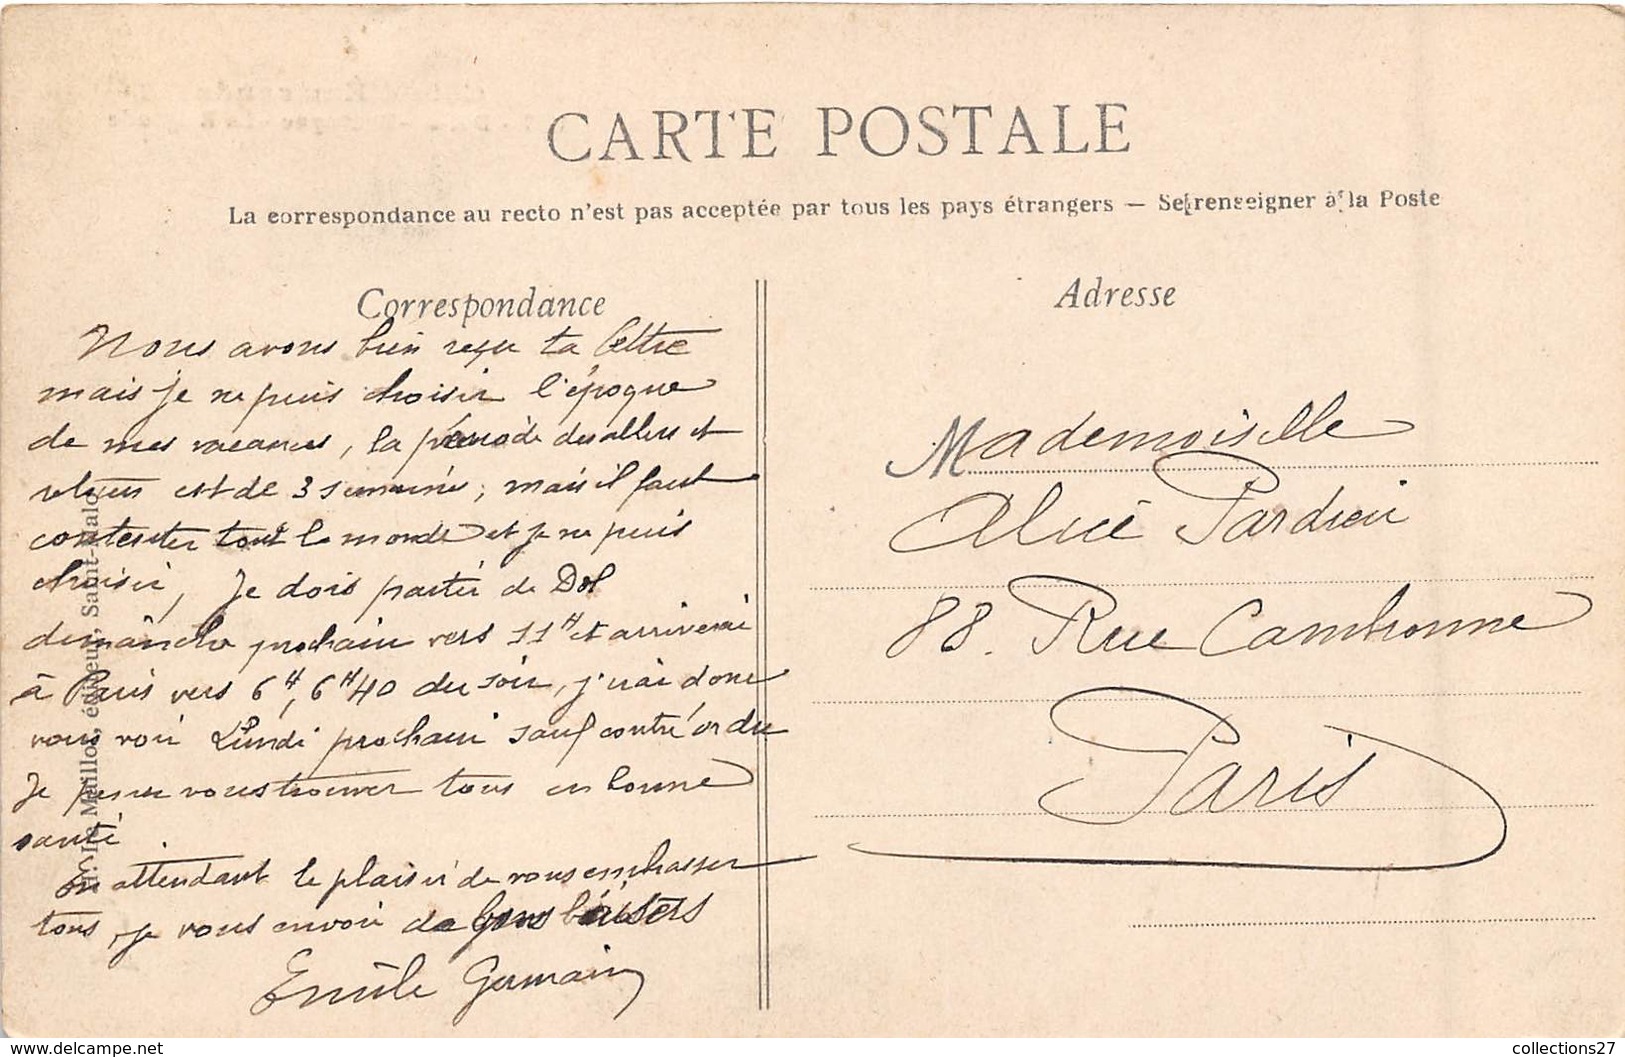 CARTE POSTALE
La correspondance au recto n'est pas acceptée par tous les pays étrangers — Se renseigner à la Poste
Correspondance
Nous avons bien reçu ta lettre
mais je ne puis choisir l'époque
de mes vacances, la période des allers et
retours est de 3 semaines, mais il faut
contenter tout le monde et je ne puis
choisir, Je dois partir de Dol
dimanche prochain vers 11H et arriverai
à Paris vers 6H, 6H40 du soir, j'irai donc
vous voir Lundi prochain sauf contre ordre
Je pense vous trouver tous en bonne
santé
En attendant le plaisir de vous embrasser
tous, je vous envoie de bons baisers
Emile Germain
H. Le Maillot, éditeur, Saint-Malo
Adresse
Mademoiselle
Alice Pardieu
88. Rue Cambronne
Paris
delcampe.net
collections27